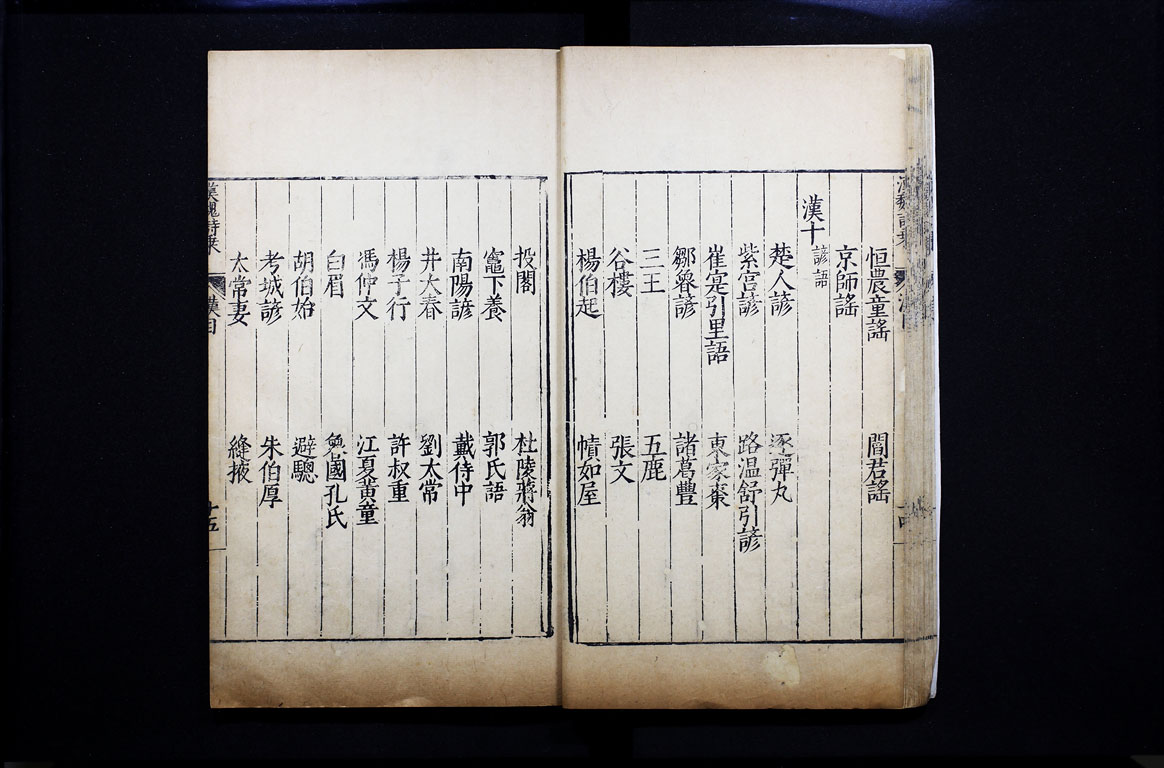 恒農童謠 閻君謠
京師謠
漢十 諺語
楚人諺 逐彈丸
紫宮諺 路温舒引諺
崔寔引里語 東家棗
鄒魯諺 諸葛豐
三王 五鹿
谷樓 張文
楊伯起 幘如屋
投閣 杜陵蔣翁
竈下養 郭氏語
南陽諺 戴侍中
井大春 劉太常
楊子行 許叔重
馮仲文 江夏黃童
白眉 魯國孔氏
胡伯始 避驄
考城諺 朱伯厚
太常妻 縫掖
漢魏詩乘 漢目 十五